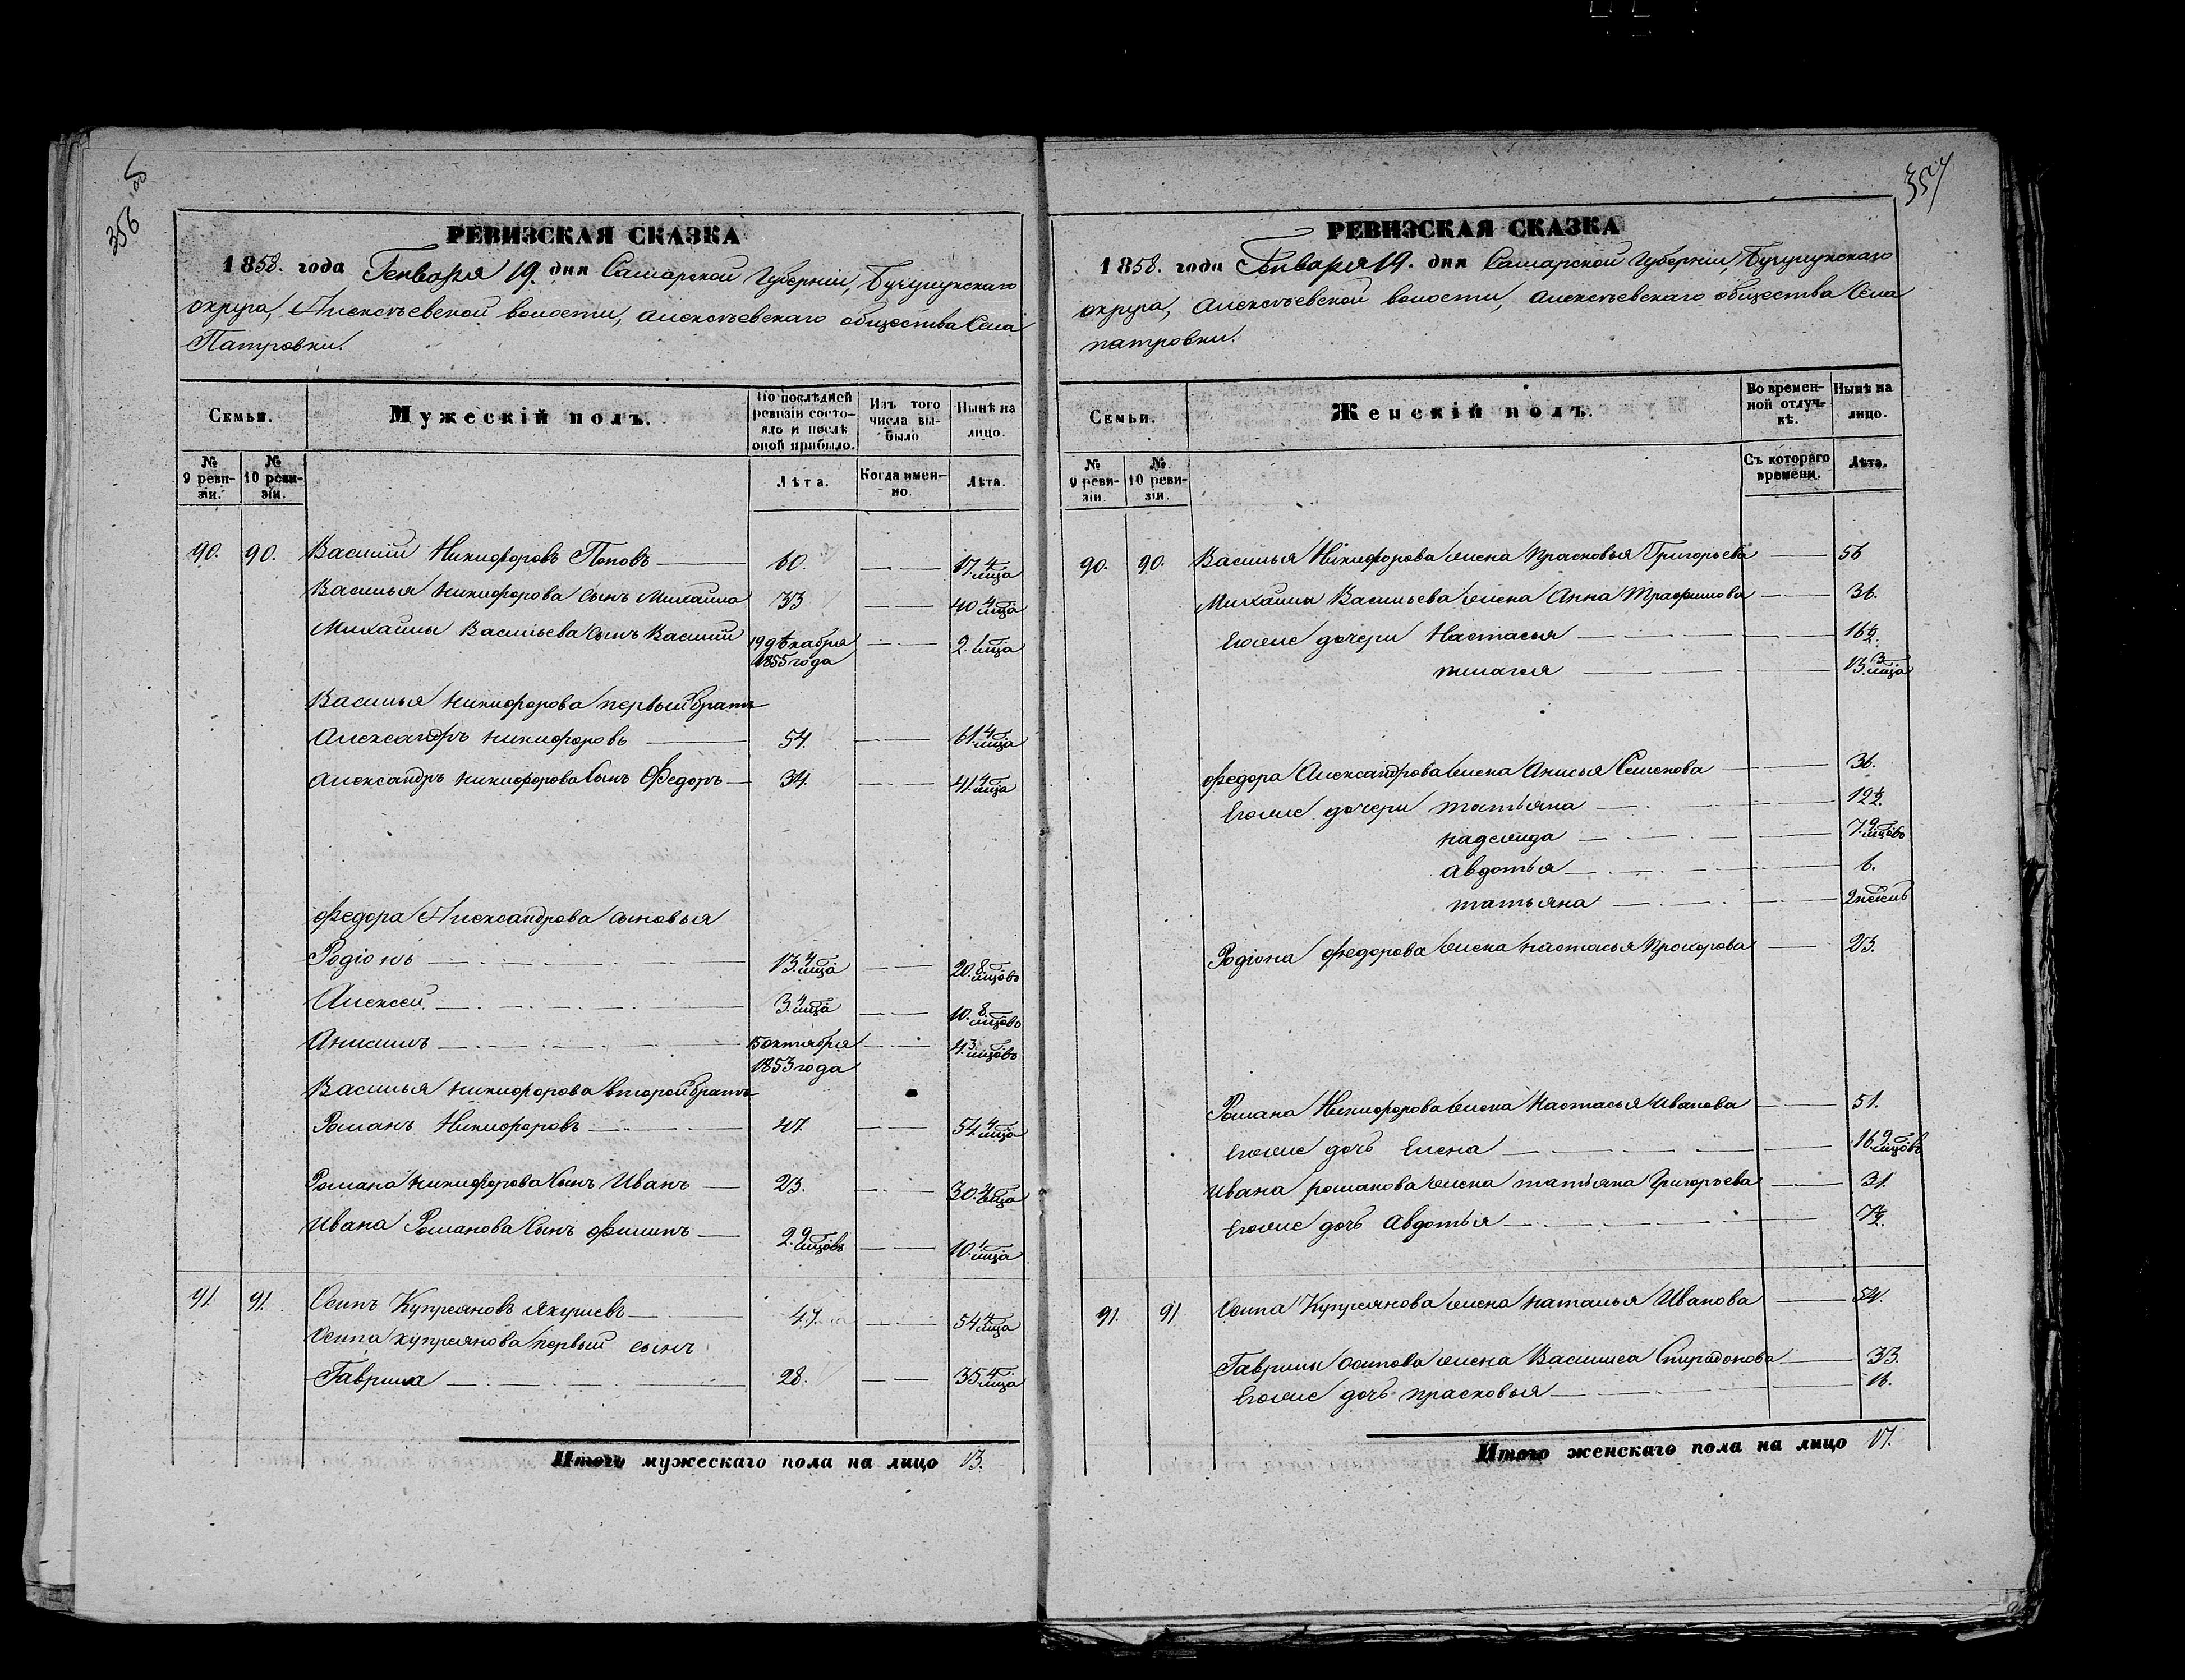 356
РЕВИЗСКАЯ СКАЗКА
1858. года Генваря 19. дня Самарской Губерніи, Бузулукскаго
округа, Алексѣевской волости, Алексѣевскаго общества Села
Патровки.
Семьи.
Мужескій полъ.
По послѣдней ревизіи состояло и послѣ оной прибыло.
Изъ того числа выбыло
Нынѣ на лицо.
№ 9 ревизіи.
№ 10 ревизіи.
Лѣта.
Когда именно.
Лѣта.
90. 90. Василій Никифоровъ Поповъ 60.
Василья Никифорова сынъ Михаила 33 40. 4 мца
Михайлы Васильева сынъ Василій 19 декабря 1855 года 2. 1 мца
Василья Никифорова первый братъ
Александръ Никифоровъ 54. 61 4 мца
Александръ Никифорова сынъ Федоръ 34. 41. 4 мца
Федора Александрова сыновья
Родіонъ 13. 4 мца 20. 8 мцовъ
Алексей 3. 4 мца 10. 8 мцовъ
Анисимъ 15 октября 1853 года 4. 3 мцовъ
Василья Никифорова второй братъ
Романъ Никифоровъ 47. 54. 4 мца
Романа Никифорова сынъ Иванъ 23. 30. 4 мца
Ивана Романова сынъ Филипъ 2. 9 мцовъ 10. 1 мца
91. 91. Осипъ Купреяновъ Якушевъ 47. 54 4 мца
Осипа Купреянова первый сынъ
Гаврила 28. 35 4 мца
Итого мужескаго пола на лицо 13.
357
РЕВИЗСКАЯ СКАЗКА
1858. года Генваря 19. дня Самарской Губерніи, Бузулукскаго
округа, Алексѣевской волости, Алексѣевскаго общества Села
патровки.
Семьи.
Женскій полъ.
Во временной отлучкѣ.
Нынѣ на лицо.
№ 9 ревизіи.
№ 10 ревизіи.
Съ котораго времени.
Лѣта.
90. 90. Василья Никифорова жена Прасковья Григорьева 56
Михайлы Васильева жена Анна Трафимова 36.
Егоже дочери Настасья 16 1/2.
13. 3 мца
Федора Александрова жена Анисья Семенова 36.
Егоже дочери татьяна 12 1/2.
надежда 7. 9 мцовъ
авдотья 6.
татьяна 2 недели
Родіона Федорова жена настасья Прохорова 23.
Романа Никифорова жена Настасья Иванова 51.
Егоже дочь Елена 16. 9 мцовъ
Ивана романова жена татьяна Григорьева 31
Егоже дочь Авдотья 7 1/2.
91. 91 Осипа Купреянова жена наталья Иванова 54.
Гаврилы Осипова жена Василиса Спиридонова 33.
Егоже дочь прасковья
Итого женскаго пола на лицо 17.